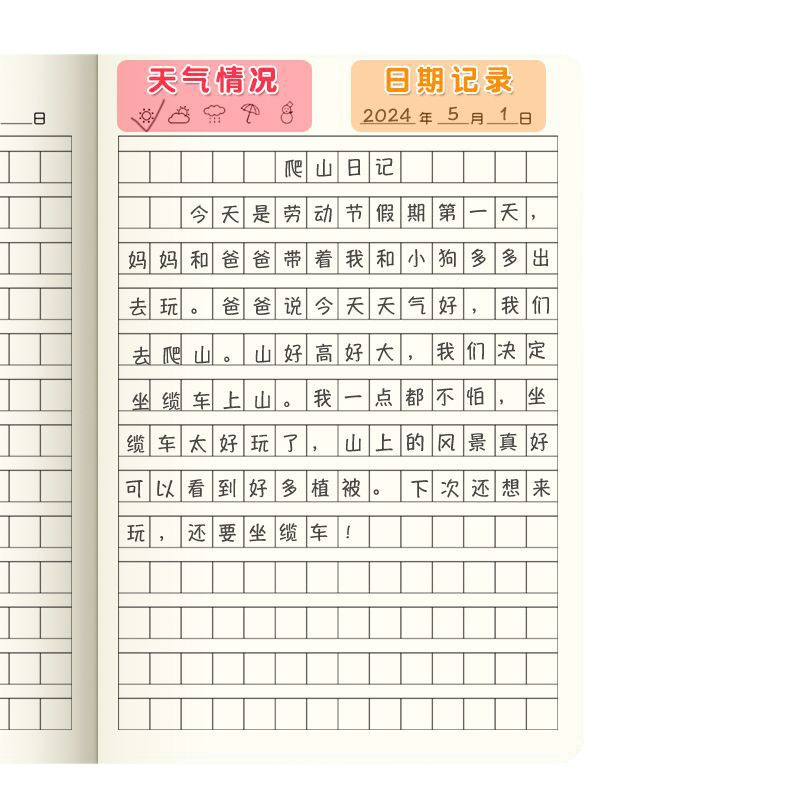 天气情况
日期记录
日
2024年5月1日
爬山日记
今天是劳动节假期第一天，
妈妈和爸爸带着我和小狗多多出
去玩。爸爸说今天天气好，我们
去爬山。山好高好大，我们决定
坐缆车上山。我一点都不怕，坐
缆车太好玩了，山上的风景真好
可以看到好多植被。下次还想来
玩，还要坐缆车！